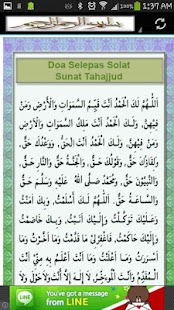 1:37 AM
Doa Selepas Solat
Sunat Tahajjud
اَللّٰهُمَّ لَكَ الْحَمْدُ أَنْتَ قَيِّمُ السَّمَوَاتِ وَالْأَرْضِ وَمَنْ
فِيْهِنَّ، وَلَكَ الْحَمْدُ السَّمَوَاتِ وَالْأَرْضِ وَمَنْ
فِيْهِنَّ، وَلَكَ الْحَمْدُ أَنْتَ الْحَقُّ، وَوَعْدُكَ حَقٌّ،
وَلِقَاؤُكَ حَقٌّ، وَقَوْلُكَ حَقٌّ، وَالْجَنَّةُ حَقٌّ، وَالنَّارُ حَقٌّ،
وَالنَّبِيُّوْنَ حَقٌّ، وَمُحَمَّدٌ صَلَّى اللهُ عَلَيْهِ وَسَلَّمَ حَقٌّ
وَالسَّاعَةُ حَقٌّ. اَللّٰهُمَّ لَكَ أَسْلَمْتُ، وَبِكَ آمَنْتُ،
وَعَلَيْكَ تَوَكَّلْتُ وَإِلَيْكَ أَنَبْتُ، وَبِكَ خَاصَمْتُ،
وَإِلَيْكَ حَاكَمْتُ، فَاغْفِرْلِيْ مَا قَدَّمْتُ، وَمَا أَخَّرْتُ وَمَا
أَسْرَرْتُ وَمَا أَعْلَنْتُ وَمَا أَنْتَ أَعْلَمُ بِهِ مِنِّيْ أَنْتَ
الْمُقَدِّمُ وَأَنْتَ الْمُؤَخِّرُ لَا إِلٰهَ إِلَّا أَنْتَ وَلَا حَوْلَ وَلَا
You've got a message
from LINE
LINE